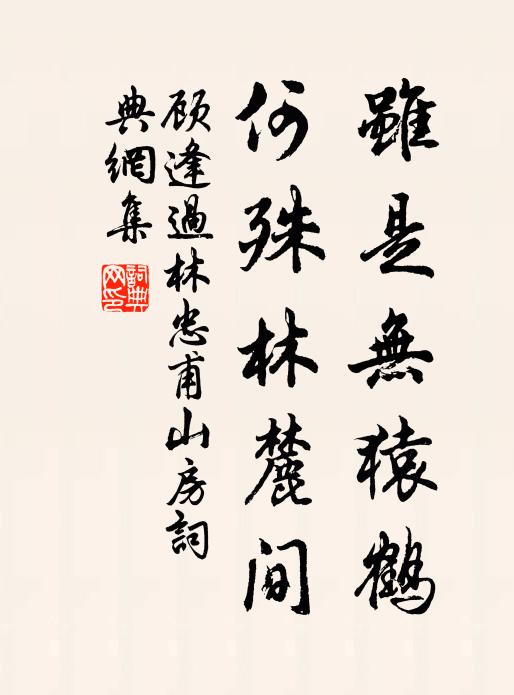 雖是無猿鶴
何殊林麓间
顾逢過林忠甫山房詞
典網集
詞典
网印